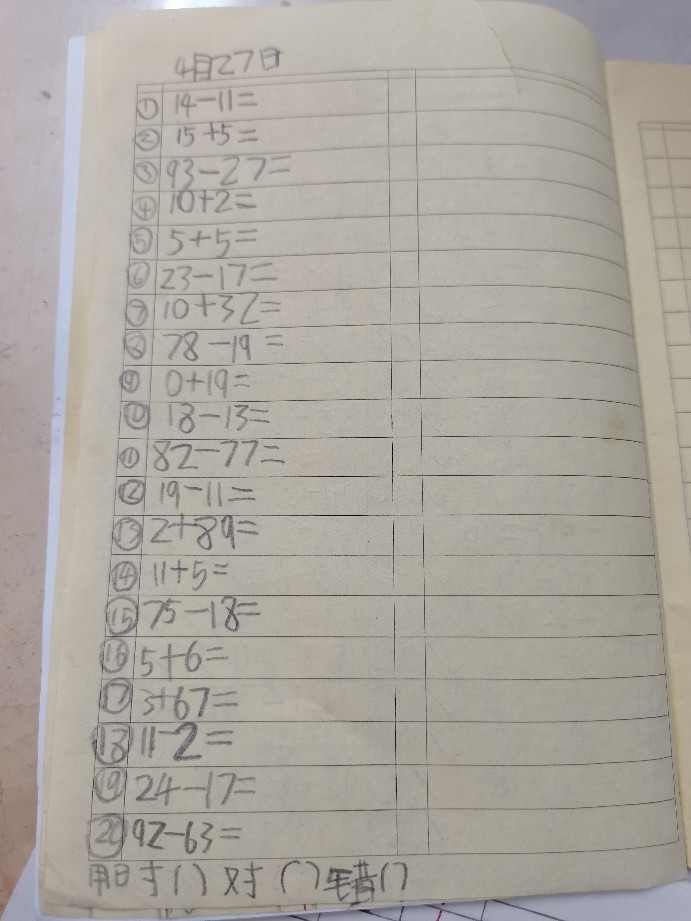 4月27日
① 14-11=
② 15+5=
③ 93-27=
④ 10+2=
⑤ 5+5=
⑥ 23-17=
⑦ 10+32=
⑧ 78-19=
⑨ 0+19=
⑩ 18-13=
⑪ 82-77=
⑫ 19-11=
⑬ 2+89=
⑭ 11+5=
⑮ 75-18=
⑯ 5+6=
⑰ 3+67=
⑱ 11-2=
⑲ 24-17=
⑳ 92-63=
用时() 对() 错()